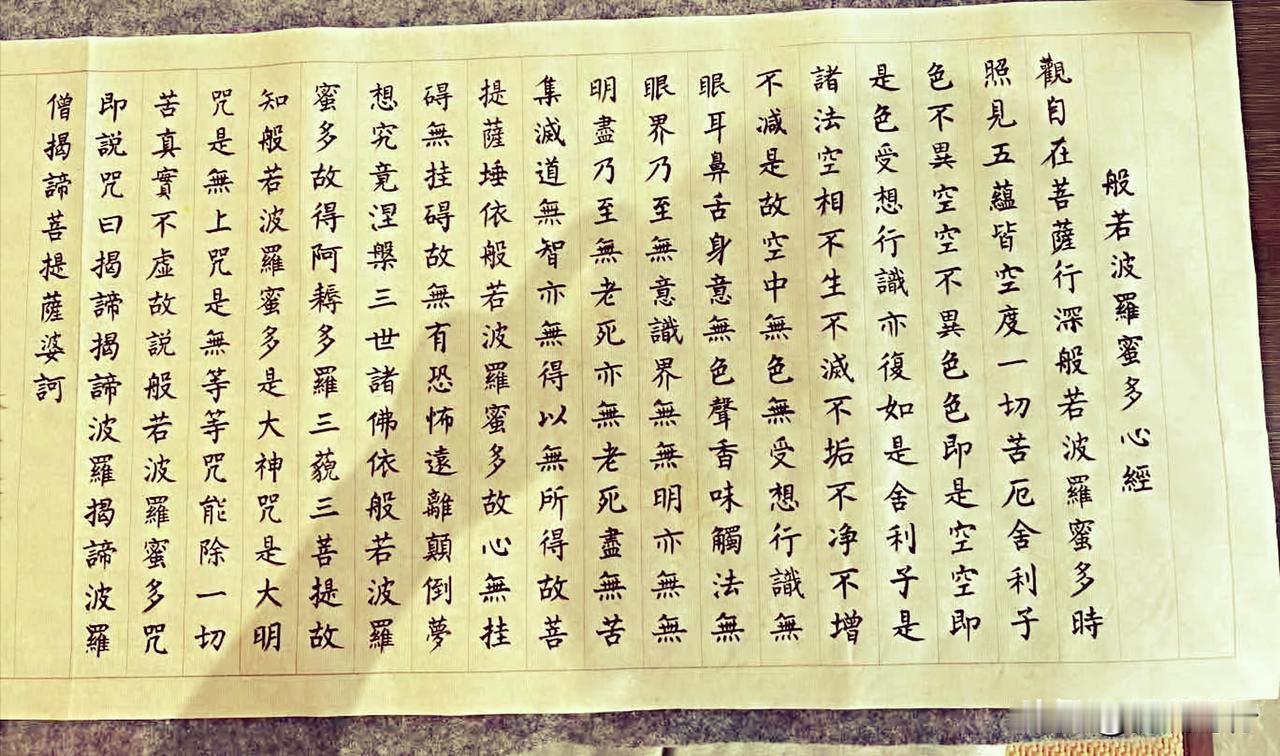 般若波羅蜜多心經
觀自在菩薩行深般若波羅蜜多時
照見五蘊皆空度一切苦厄舍利子
色不異空空不異色色即是空空即
是色受想行識亦復如是舍利子是
諸法空相不生不滅不垢不净不增
不减是故空中無色無受想行識無
眼耳鼻舌身意無色聲香味觸法無
眼界乃至無意識界無無明亦無無
明盡乃至無老死亦無老死盡無苦
集滅道無智亦無得以無所得故菩
提薩埵依般若波羅蜜多故心無挂
碍無挂碍故無有恐怖遠離顛倒夢
想究竟涅槃三世諸佛依般若波羅
蜜多故得阿耨多羅三藐三菩提故
知般若波羅蜜多是大神咒是大明
咒是無上咒是無等等咒能除一切
苦真實不虛故説般若波羅蜜多咒
即説咒曰揭諦揭諦波羅揭諦波羅
僧揭諦菩提薩婆訶